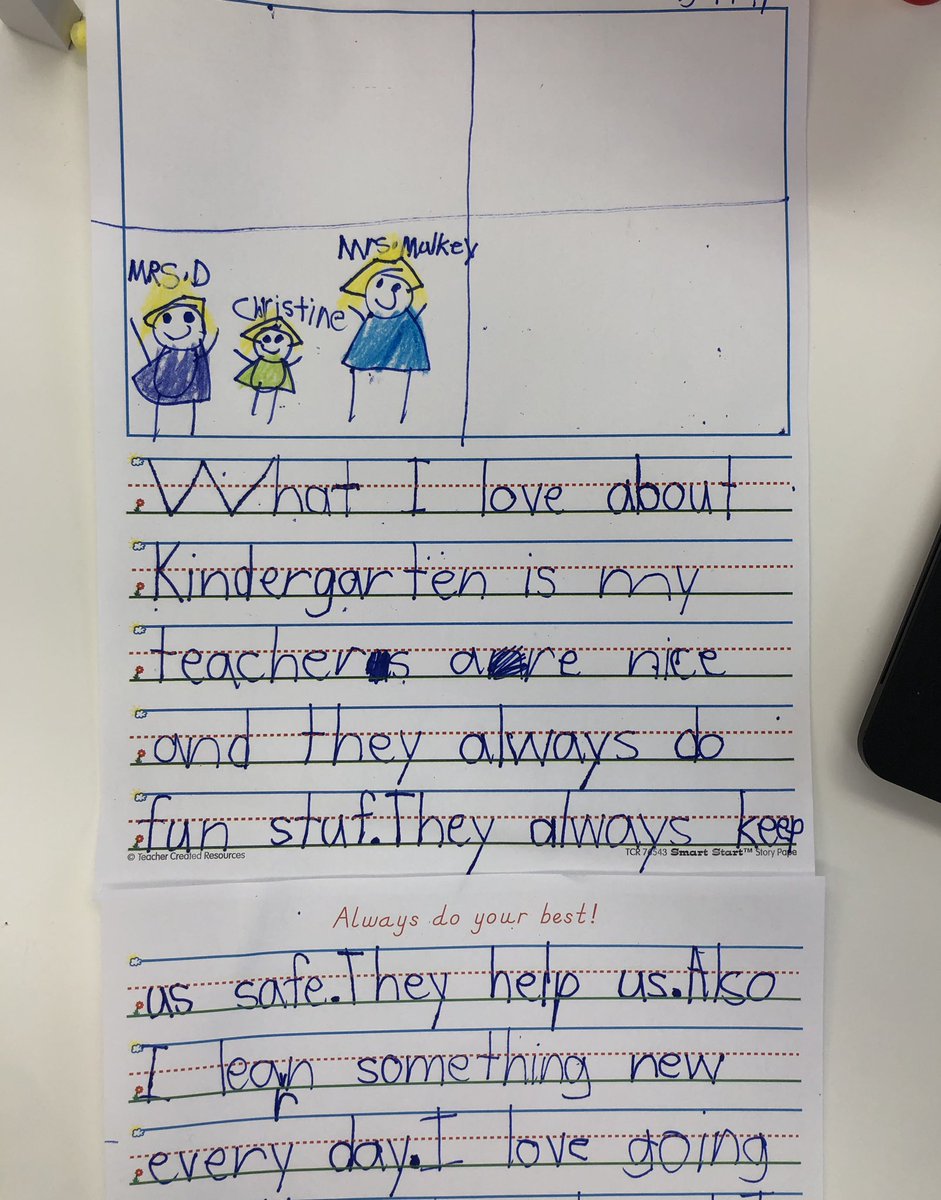 MRS.D
Christine
Mrs. Mulkey
What I love about
Kindergarten is my
teachers are nice
and they always do
fun stuf. They always keep
© Teacher Created Resources
TCR Smart Start™ Story Pape
Always do your best!
us safe. They help us. Also
I learn something new
every day. I love going